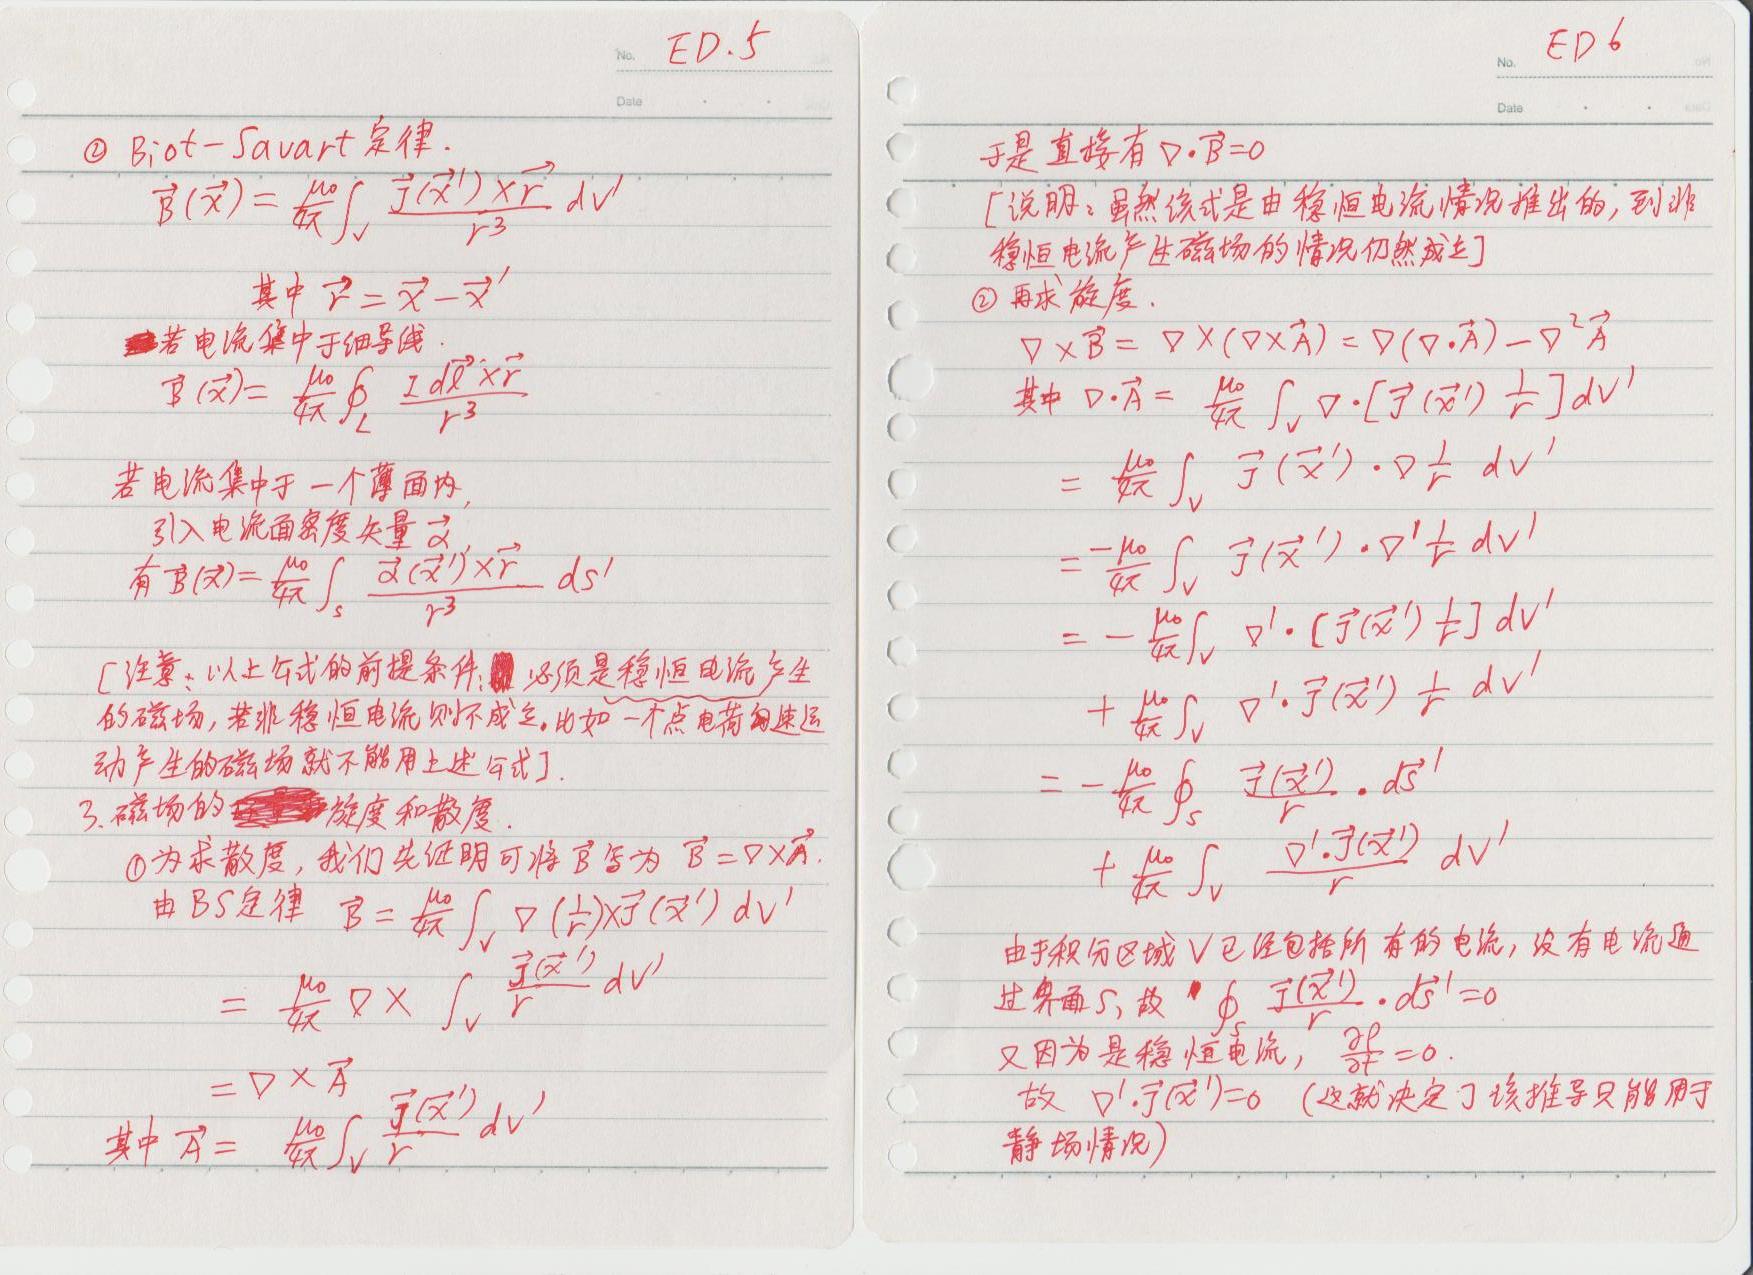 No. ED.5
Date
② Biot-Savart 定律.
B⃗(x⃗) = μ₀/4π ∫_V J⃗(x⃗')×r⃗ / r³ dV'
其中 r⃗ = x⃗ - x⃗'
若电流集中于细导线.
B⃗(x⃗) = μ₀/4π ∮_L I dl⃗×r⃗ / r³
若电流集中于一个薄面内,
引入电流面密度矢量 α⃗,
有 B⃗(x⃗) = μ₀/4π ∫_S α⃗(x⃗')×r⃗ / r³ ds'
[注意: 以上公式的前提条件: 必须是稳恒电流产生
的磁场, 若非稳恒电流则不成立. 比如一个点电荷匀速运
动产生的磁场就不能用上述公式].
3. 磁场的旋度和散度.
① 为求散度, 我们先证明可将 B⃗ 写为 B⃗ = ∇×A⃗.
由BS定律 B⃗ = μ₀/4π ∫_V ∇(1/r)×J⃗(x⃗') dV'
= μ₀/4π ∇× ∫_V J⃗(x⃗')/r dV'
= ∇×A⃗
其中 A⃗ = μ₀/4π ∫_V J⃗(x⃗')/r dV'
No. ED 6
Date
于是直接有 ∇·B⃗=0
[说明: 虽然该式是由稳恒电流情况推出的, 到非
稳恒电流产生磁场的情况仍然成立]
② 再求旋度.
∇×B⃗ = ∇×(∇×A⃗) = ∇(∇·A⃗) - ∇²A⃗
其中 ∇·A⃗ = μ₀/4π ∫_V ∇·[J⃗(x⃗') 1/r] dV'
= μ₀/4π ∫_V J⃗(x⃗')·∇ 1/r dV'
= -μ₀/4π ∫_V J⃗(x⃗')·∇' 1/r dV'
= - μ₀/4π ∫_V ∇'·[J⃗(x⃗') 1/r] dV'
+ μ₀/4π ∫_V ∇'·J⃗(x⃗') 1/r dV'
= - μ₀/4π ∮_S J⃗(x⃗')/r · ds⃗'
+ μ₀/4π ∫_V ∇'·J⃗(x⃗')/r dV'
由于积分区域 V 已经包括所有的电流, 没有电流通
过界面 S, 故 ∮_S J⃗(x⃗')/r · ds⃗' = 0
又因为是稳恒电流, ∂ρ/∂t = 0.
故 ∇'·J⃗(x⃗')=0 (这就决定了该推导只能用于
静场情况)